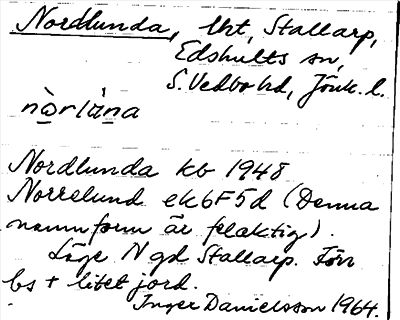 Nordlunda, lht, Stallarp,
Edshults sn,
S. Vedbo hd, Jönk. l.
nòrlùna
Nordlunda kb 1948
Norrelund ek 6F5d (Denna
namnform är felaktig).
Läge N gd Stallarp. Förr
bs + litet jord.
Inger Danielsson 1964.